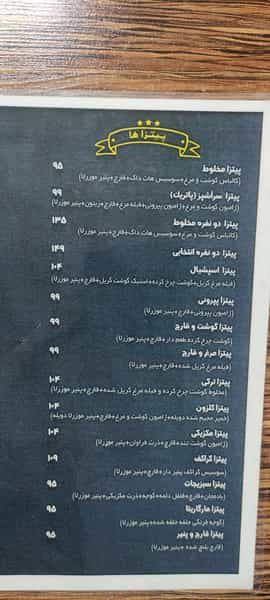 پیتزا ها
پیتزا مخلوط ۹۵
(کالباس گوشت و مرغ+سوسیس هات داگ+قارچ+پنیر موزرلا)
پیتزا سرآشپز (پاتریک) ۹۹
(ژامبون گوشت و مرغ+ژامبون پپرونی+فیله مرغ+قارچ+زیتون+پنیر موزرلا)
پیتزا دو نفره مخلوط ۱۳۵
(کالباس گوشت و مرغ+سوسیس هات داگ+قارچ+پنیر موزرلا)
پیتزا دو نفره انتخابی ۱۴۹
پیتزا اسپشیال ۱۰۴
(فیله مرغ گریل+گوشت چرخ کرده+استیک گوشت گریل+قارچ+پنیر موزرلا)
پیتزا پپرونی ۹۹
(ژامبون پپرونی+قارچ+پنیر موزرلا)
پیتزا گوشت و قارچ ۹۹
(گوشت چرخ کرده طعم دار+قارچ+پنیر موزرلا)
پیتزا مرغ و قارچ ۹۹
(فیله مرغ گریل شده+قارچ+پنیر موزرلا)
پیتزا ترکی ۱۰۴
(مخلوط گوشت چرخ کرده و فیله مرغ گریل شده+قارچ+پنیر موزرلا)
پیتزا کلزون ۱۰۴
(خمیر حجیم شده دوبله+ژامبون گوشت و مرغ+قارچ+پنیر موزرلا دوبله)
پیتزا مکزیکی ۱۰۴
(ژامبون گوشت تند+قارچ+ذرت فراوان+پنیر موزرلا)
پیتزا کراکف ۱۰۹
(سوسیس کراکف پنیر دار+قارچ+پنیر موزرلا)
پیتزا سبزیجات ۹۵
(بادمجان+قارچ+فلفل دلمه+گوجه+ذرت مکزیکی+پنیر موزرلا)
پیتزا مارگاریتا ۹۵
(گوجه فرنگی حلقه حلقه شده+پنیر موزرلا)
پیتزا قارچ و پنیر ۹۵
(قارچ پخته شده+پنیر موزرلا)